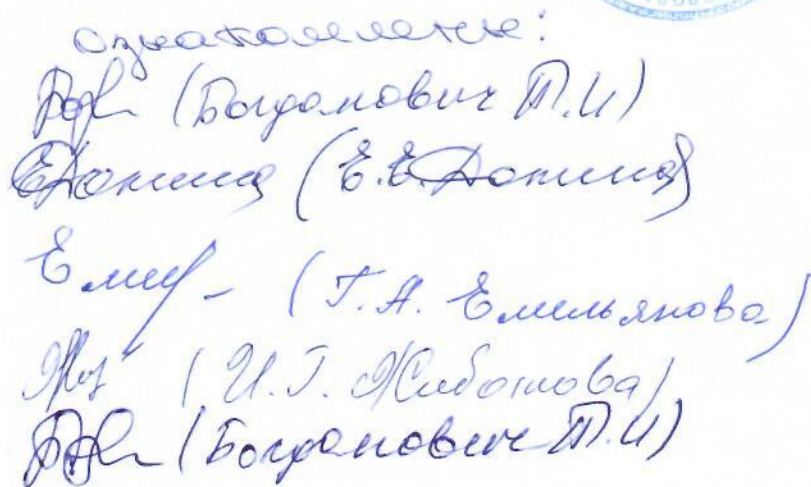 ознакомлены:
(Богданович Т.И)
ЕДонина (Е.Е.Донина)
Емил- (Г.А. Емельянова)
(И.Г. Животова)
(Богданович Т.И)